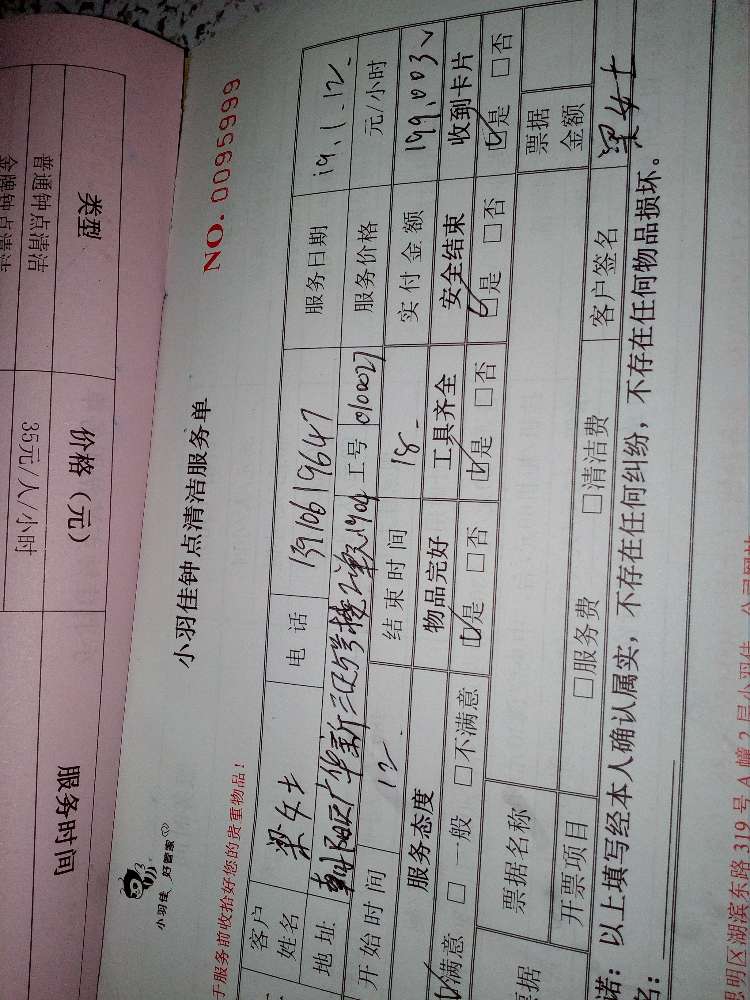 类型
价格（元）
服务时间
普通钟点清洁
35元/人/小时
小羽佳 好管家
小羽佳钟点清洁服务单
NO. 0095999
于服务前收拾好您的贵重物品！
客户姓名 梁女士 电话 13910619647 服务日期 19.1.12.
地址 工号 0100027 服务价格 元/小时
开始时间 12 结束时间 18 实付金额
服务态度 物品完好 工具齐全 安全结束 收到卡片
满意 □一般 □不满意 是 □否 是 □否 是 □否 是 □否
票据名称 票据金额
票据
开票项目 □服务费 □清洁费 客户签名 梁女士
诺：以上填写经本人确认属实，不存在任何纠纷，不存在任何物品损坏。
名：
思明区湖滨东路 319 号 A 幢 2 层小羽佳